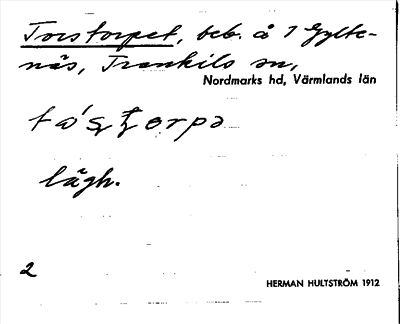 Torstorpet, beb. å 7 Gylte-
näs, Trankils sn,
Nordmarks hd, Värmlands län
lägh.
2
HERMAN HULTSTRÖM 1912